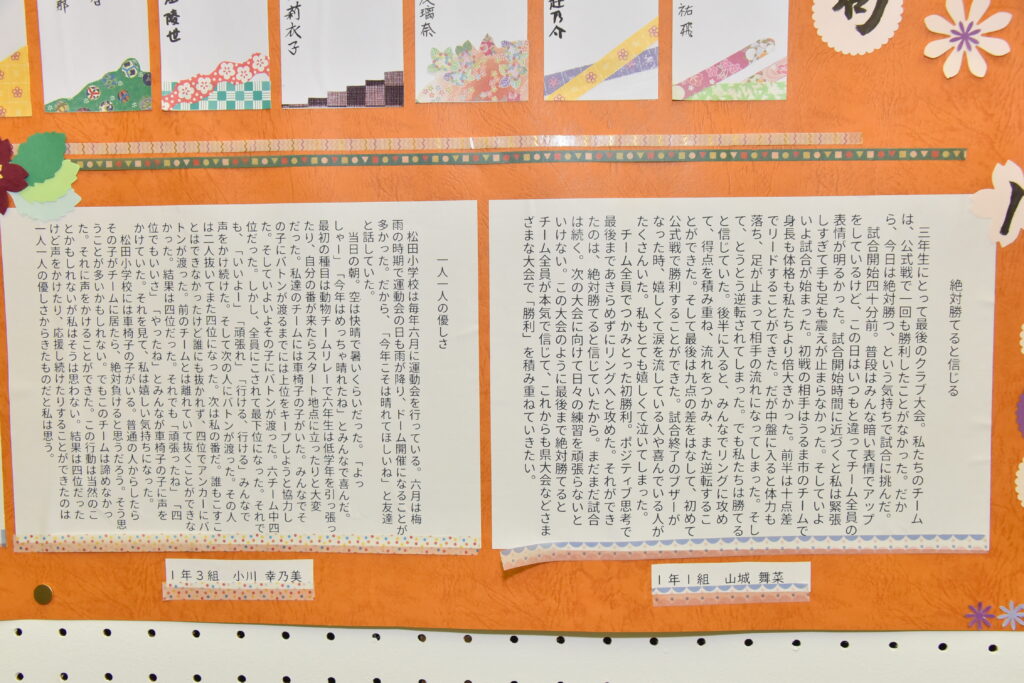 隆世
莉衣子
璃奈
祐飛
絶対勝てると信じる
三年生にとって最後のクラブ大会。私たちのチーム
は、公式戦で一回も勝利したことがなかった。だか
ら、今日は絶対勝つ、という気持ちで試合に挑んだ。
試合開始四十分前。普段はみんな暗い表情でアップ
をしているけど、この日はいつもと違ってチーム全員の
表情が明るかった。試合開始時間に近づくと私は緊張
しすぎて手も足も震えが止まらなかった。そしていよ
いよ試合が始まった。初戦の相手はうるま市のチームで
身長も体格も私たちより倍大きかった。前半は十点差
でリードすることができた。だが中盤に入ると体力も
落ち、足が止まって相手の流れになってしまった。そし
て、とうとう逆転されてしまった。でも私たちは勝てる
と信じていた。後半に入ると、みんなでリングに攻め
て、得点を積み重ね、流れをつかみ、また逆転するこ
とができた。そして最後は九点の差をはなして、初めて
公式戦で勝利することができた。試合終了のブザーが
なった時、嬉しくて涙を流している人や喜んでいる人が
たくさんいた。私もとても嬉しくて泣いてしまった。
チーム全員でつかみとった初勝利。ポジティブ思考で
最後まであきらめずにリングへと攻めた。それができ
たのは、絶対勝てると信じていたから。まだまだ試合
は続く。次の大会に向けて日々の練習を頑張らないと
いけない。この大会のように最後まで絶対勝てると
チーム全員が本気で信じて、これからも県大会などさま
ざまな大会で「勝利」を積み重ねていきたい。
1年1組 山城 舞菜
一人一人の優しさ
松田小学校は毎年六月に運動会を行っている。六月は梅
雨の時期で運動会の日も雨が降り、ドーム開催になることが
多かった。だから、「今年こそは晴れてほしいね」と友達
と話していた。
当日の朝。空は快晴で暑いくらいだった。「よっ
しゃー」「今年はめっちゃ晴れたね」とみんなで喜んだ。
最初の種目は動物チームリレーで六年生は低学年を引っ張っ
たり、自分の番が来たらスタート地点に立ったりと大変
だった。私達のチームには車椅子の子がいた。みんなでそ
の子にバトンが渡るまでには上位をキープしようと協力し
た。そしていよいよその子にバトンが渡った。六チーム中四
位だった。しかし、全員にこされて最下位になった。それで
も「いいよー」「頑張れ」「行ける、行ける」みんなで
声をかけ続けた。そして次の人にバトンが渡った。その人
は二人抜いてまた四位になった。次は私の番だ。誰もこすこ
とはできなかったけど誰にも抜かれず、四位でアンカーにバ
トンが渡った。前のチームとは離れていて抜くことができな
かった。結果は四位だった。それでも「頑張ったね」「四
位でもいいさ」「やったね」とみんなが車椅子の子に声を
かけていた。それを見て、私は嬉しい気持ちになった。
松田小学校には車椅子の子がいる。普通の人からしたら
その子がチームに居たら、絶対負けると思うだろう。そう思
うことが多いかもしれない。でもこのチームは諦めなかっ
た。それに声をかけることができた。この行動は当然のこ
とかもしれないが私はそうは思わない。結果は四位だった
けど声をかけたり、応援し続けたりすることができたのは
一人一人の優しさからきたものだと私は思う。
1年3組 小川 幸乃美